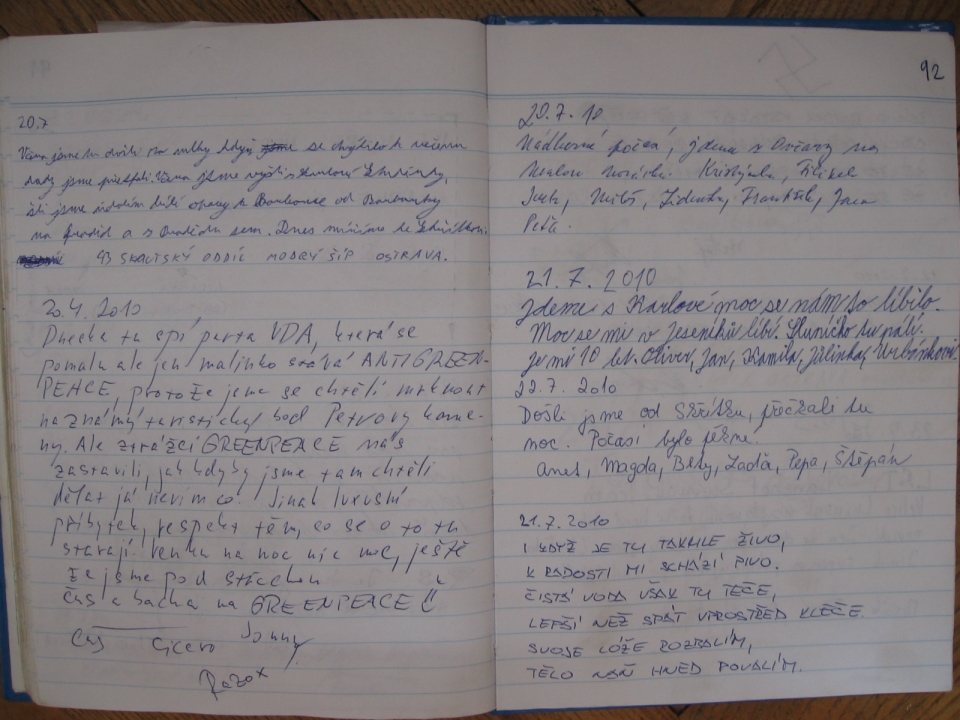 20.7
Včera jsme tu došli se chystali k večeru
tady jsme přespali. Včera jsme vyšli
šli jsme údolím bílé opavy k Barborce od Barborky
na Praděd a z Pradědu sem. Dnes míříme ke
93 SKAUTSKÝ ODDÍL MODRÝ ŠÍP OSTRAVA.
20.4.2010
Dneska tu spí parta VDA, která se
pomalu ale jen malinko stává ANTIGREEN-
PEACE, protože jsme se chtěli mrknout
na známý turistický bod Petrovy kame-
ny. Ale strážci GREENPEACE nás
zastavili, jak kdyby jsme tam chtěli
dělat já nevím co. Jinak luxusní
příbytek, respekt těm, co se o to tu
starají. Venku na noc nic moc, ještě
že jsme pod střechou
čus a bacha na GREENPEACE
Čus Cicero Jonny
Razox
92
20.7.10
Nádherné počasí, jdeme z Ovčárny na
Kristýnka, Filípek
Jenda, Miloš, Zdenka, František, Jana
Péťa.
21.7.2010
Jdeme s Karlové moc se nám to líbilo.
Moc se mi v Jeseníkách líbí. Sluníčko tu pálí.
Je mi 10 let. Oliver, Jan, Kamila, Julinka, Urbánkovi
22.7.2010
Došli jsme od Skřítku, přečkali tu
noc. Počasí bylo pěkné.
Anet, Magda, Bety, Laďa, Pepa, Štěpán
21.7.2010
I KDYŽ JE TU TAKHLE ŽIVO,
K RADOSTI MI SCHÁZÍ PIVO.
ČISTÁ VODA VŠAK TU TEČE,
LEPŠÍ NEŽ SPÁT UPROSTŘED KLEČE.
SVOJE LÓŽE ROZBALÍM,
TĚLO NAŇ HNED POVALÍM.